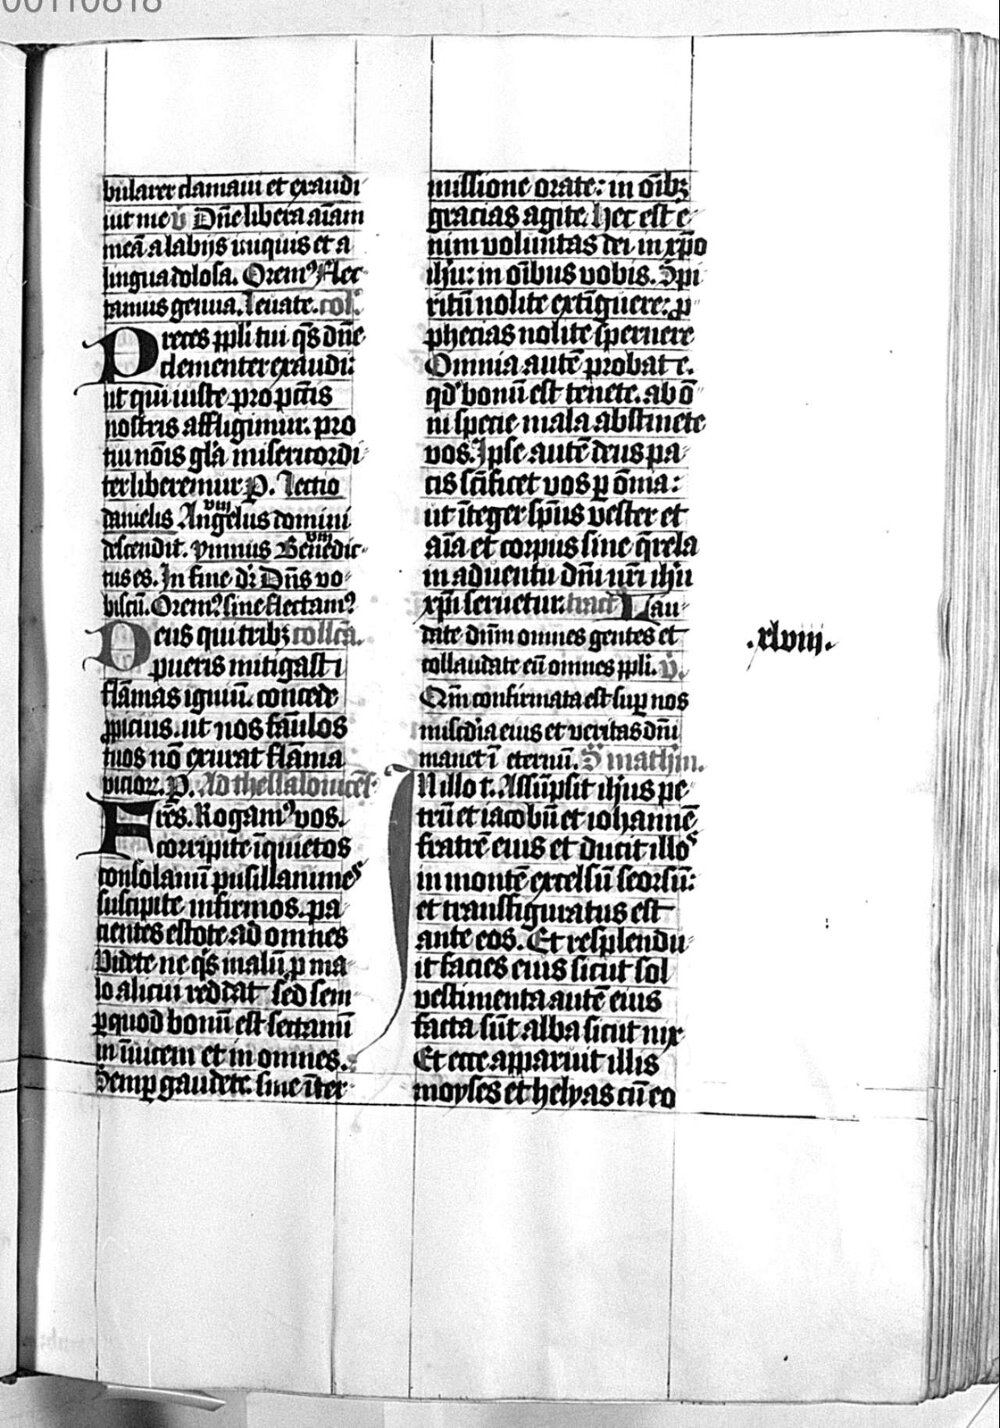 00110818
bularer clamaui et exaudi
uit me v̄ Dn̄e libera aīam
meā a labijs iniquis et a
lingua dolosa. Oremꝰ Flec
tamus genua. leuate. col̄.
Preces ppl̄i tui qs̄ dn̄e
clementer exaudi:
ut qui iuste pro pctīs
nostris affligimur. pro
tui nōis gl̄a misericordi
ter liberemur P. Lectio
danielis Angelus domini
descendit. ymnus Benedic
tus es. In fine dr̄ Dn̄s vo
biscū. Oremꝰ sine flectamꝰ
Deus qui tribꝫ collc̄a.
pueris mitigasti
flāmas igniū. concede
ꝓpicius. ut nos famlos
tuos nō exurat flāma
vicioꝝ. P. Ad thessalonicēs
Frēs. Rogamꝰ vos.
corripite īquietos
consolamī pusillanimes
suscipite infirmos. pa
cientes estote ad omnes
Videte ne qs̄ malū p ma
lo alicui reddat sed sem
ꝑ quod bonū est sectamī
in īuicem et in omnes.
Semꝑ gaudete. sine īter
missione orate: in oībꝫ
gracias agite. hec est e
nim voluntas dei in xp̄o
ih̄u: in oībus vobis. Spi
ritū nolite extīguere: ꝓ
phecias nolite spernere
Omnia autē probate.
qd̄ bonū est tenete. ab o
ni specie mala abstinete
vos. Ipse autē deus pa
cis sc̄ificet vos ꝑ om̄ia:
ut īteger sp̄us vester et
aīa et corpus sine q̄rela
in aduentu dn̄i nr̄i ih̄u
xp̄i seruetur. tract Lau
date dn̄m omnes gentes et
collaudate eū omnes ppl̄i. v̄.
Qm̄ confirmata est suꝑ nos
misc̄dia eius et veritas dn̄i
manet ī eternū. S̄ mathm.
In illo t. Assūpsit ih̄us pe
trū et iacobū et iohannē
fratrē eius et ducit illos
in montē excelsū seorsū:
et transfiguratus est
ante eos. Et resplendu
it facies eius sicut sol
vestimenta autē eius
facta sūt alba sicut nix
Et ecce apparuit illis
moyses et helyas cū eo
.xlviii.